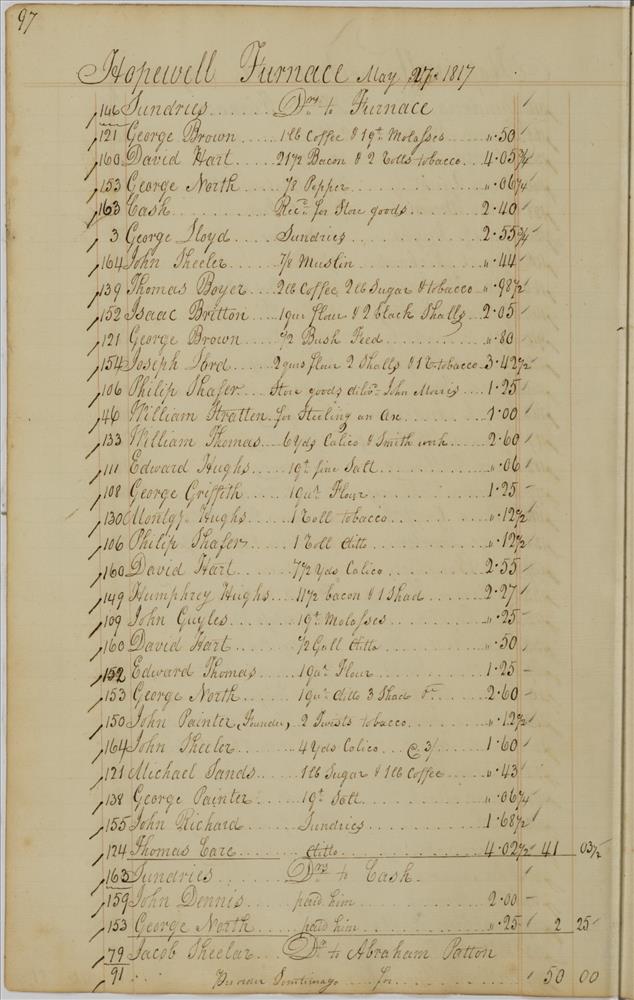 97
Hopewell Furnace May 27th 1817
146 Sundries Drs to Furnace
121 George Brown 1 lb Coffee & 1 qt Molasses ".50
160 David Hart 21 1/2 Bacon & 2 Rolls tobacco 4.05 3/4
153 George North 1/8 Pepper ".06 1/4
163 Cash Recd for Store goods 2.40
3 George Lloyd Sundries 2.55 3/4
164 John Sheeler 7/8 Muslin ".44
139 Thomas Boyer 2 lb Coffee 2 lb Sugar & tobacco ".98 1/2
152 Isaac Britton 1 qur flour & 2 black Shalls 2.05
121 George Brown 1/2 Bush Feed ".80
154 Joseph Lord 2 qurs flour 2 Shalls & 1 R tobacco 3.42 1/2
106 Philip Shafer Store goods delivd John Morris 1.25
46 William Stratten for Steeling an Ax 1.00
133 William Thomas 6 Yds Calico & Smith work 2.60
111 Edward Hughs 1 qt fine Salt ".06
108 George Griffith 1 qur Flour 1.25
130 Montgy Hughs 1 Roll tobacco ".12 1/2
106 Philip Shafer 1 Roll ditto ".12 1/2
160 David Hart 7 1/2 Yds Calico 2.55
149 Humphrey Hughs 11 1/2 bacon & 1 Shad 2.27
109 John Guyles 1 qt Molasses ".25
160 David Hart 1/2 Gall ditto ".50
152 Edward Thomas 1 qur Flour 1.25
153 George North 1 qur ditto 3 Shad &c 2.60
150 John Painter (Founder) 2 Twists tobacco ".12 1/2
164 John Sheeler 4 Yds Calico @ 3/ 1.60
121 Michael Sands 1 lb Sugar & 1 lb Coffee ".43
138 George Painter 1 qt Salt ".06 1/4
155 John Richard Sundries 1.68 1/2
124 Thomas Care ditto 4.02 1/2 41 03 1/2
163 Sundries Drs to Cash
159 John Dennis paid him 2.00
153 George North paid him ".25 2 25
79 Jacob Sheelar Dr to Abraham Patton
91 for 50 00